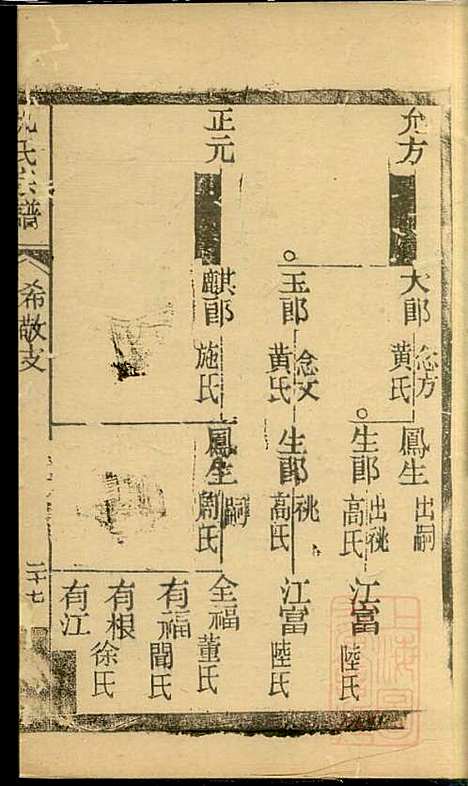 允方
大郎 念方 黄氏
鳳生 出嗣
生郎 出祧 高氏
江富 陸氏
玉郎 念文 黄氏
生郎 祧 高氏
江富 陸氏
正元
麒郎 施氏
鳳生 嗣 周氏
全福 董氏
有福 聞氏
有根 徐氏
有江
氏宗譜
希敬支
二十七
上海